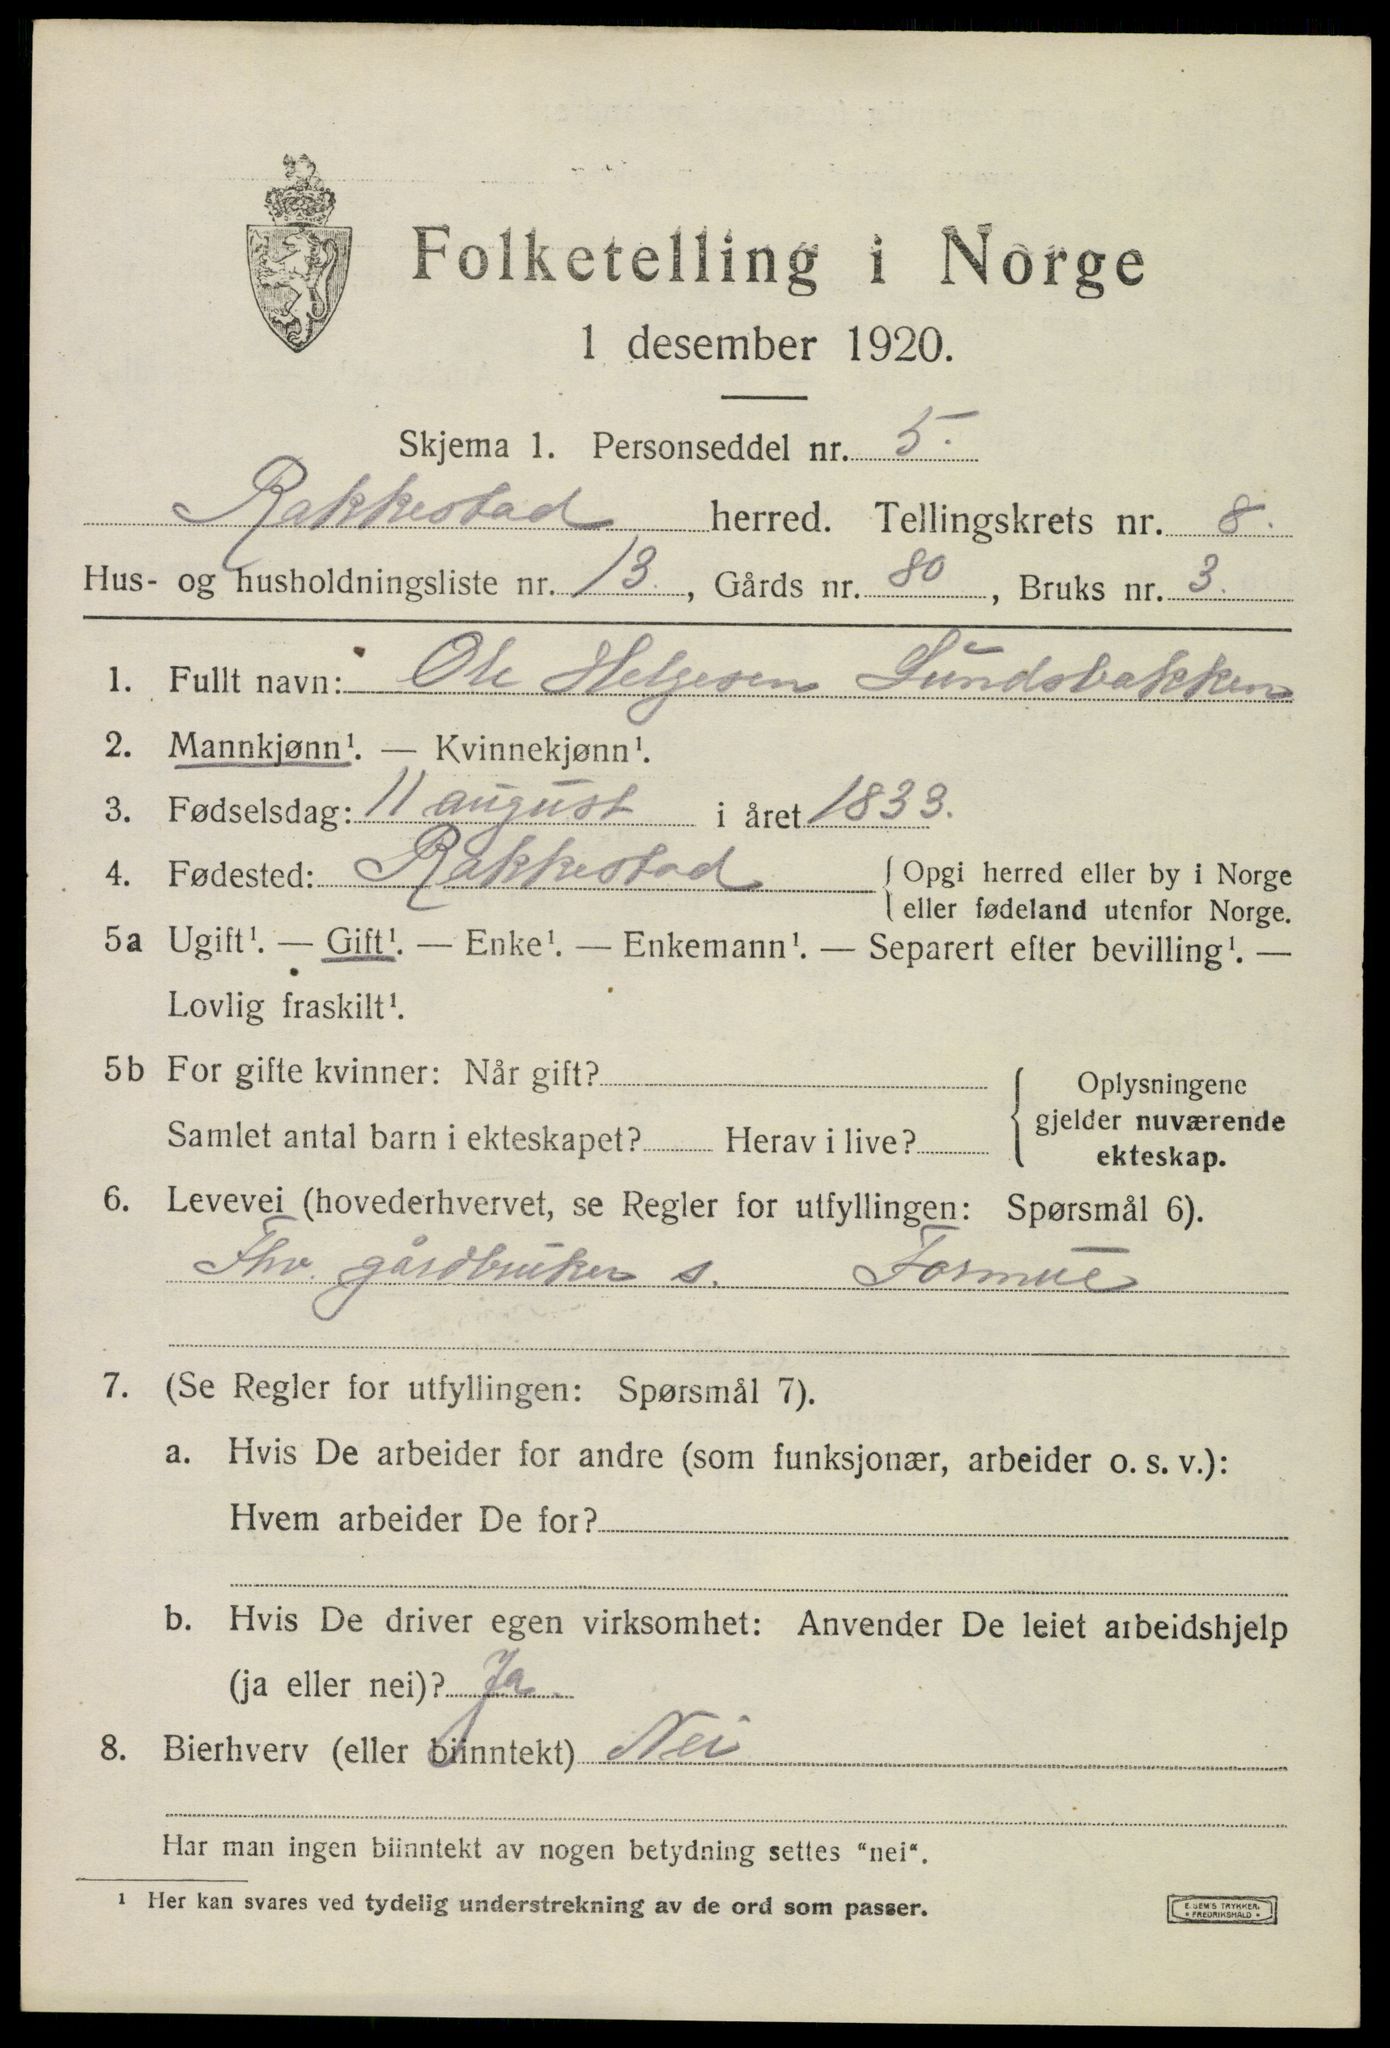 Folketelling i Norge
1 desember 1920.
Skjema 1. Personseddel nr. 5.
Rakkestad herred. Tellingskrets nr. 8.
Hus- og husholdningsliste nr. 13., Gårds nr. 80, Bruks nr. 3.
1. Fullt navn: Ole Helgesen Sundsbakken
2. Mannkjønn¹. — Kvinnekjønn¹.
3. Fødselsdag: 11 august i året 1833.
4. Fødested: Rakkestad { Opgi herred eller by i Norge
eller fødeland utenfor Norge.
5a Ugift¹. — Gift¹. — Enke¹. — Enkemann¹. — Separert efter bevilling¹. —
Lovlig fraskilt¹.
5b For gifte kvinner: Når gift?
Samlet antal barn i ekteskapet? Herav i live?
{ Oplysningene
gjelder nuværende
ekteskap.
6. Levevei (hovederhvervet, se Regler for utfyllingen: Spørsmål 6).
Fhv. gårdbruker s. Formue
7. (Se Regler for utfyllingen: Spørsmål 7).
a. Hvis De arbeider for andre (som funksjonær, arbeider o. s. v.):
Hvem arbeider De for?
b. Hvis De driver egen virksomhet: Anvender De leiet arbeidshjelp
(ja eller nei)? Ja.
8. Bierhverv (eller biinntekt) Nei
Har man ingen biinntekt av nogen betydning settes "nei".
¹ Her kan svares ved tydelig understrekning av de ord som passer.
E. SEM'S TRYKKERI
• FREDRIKSHALD •